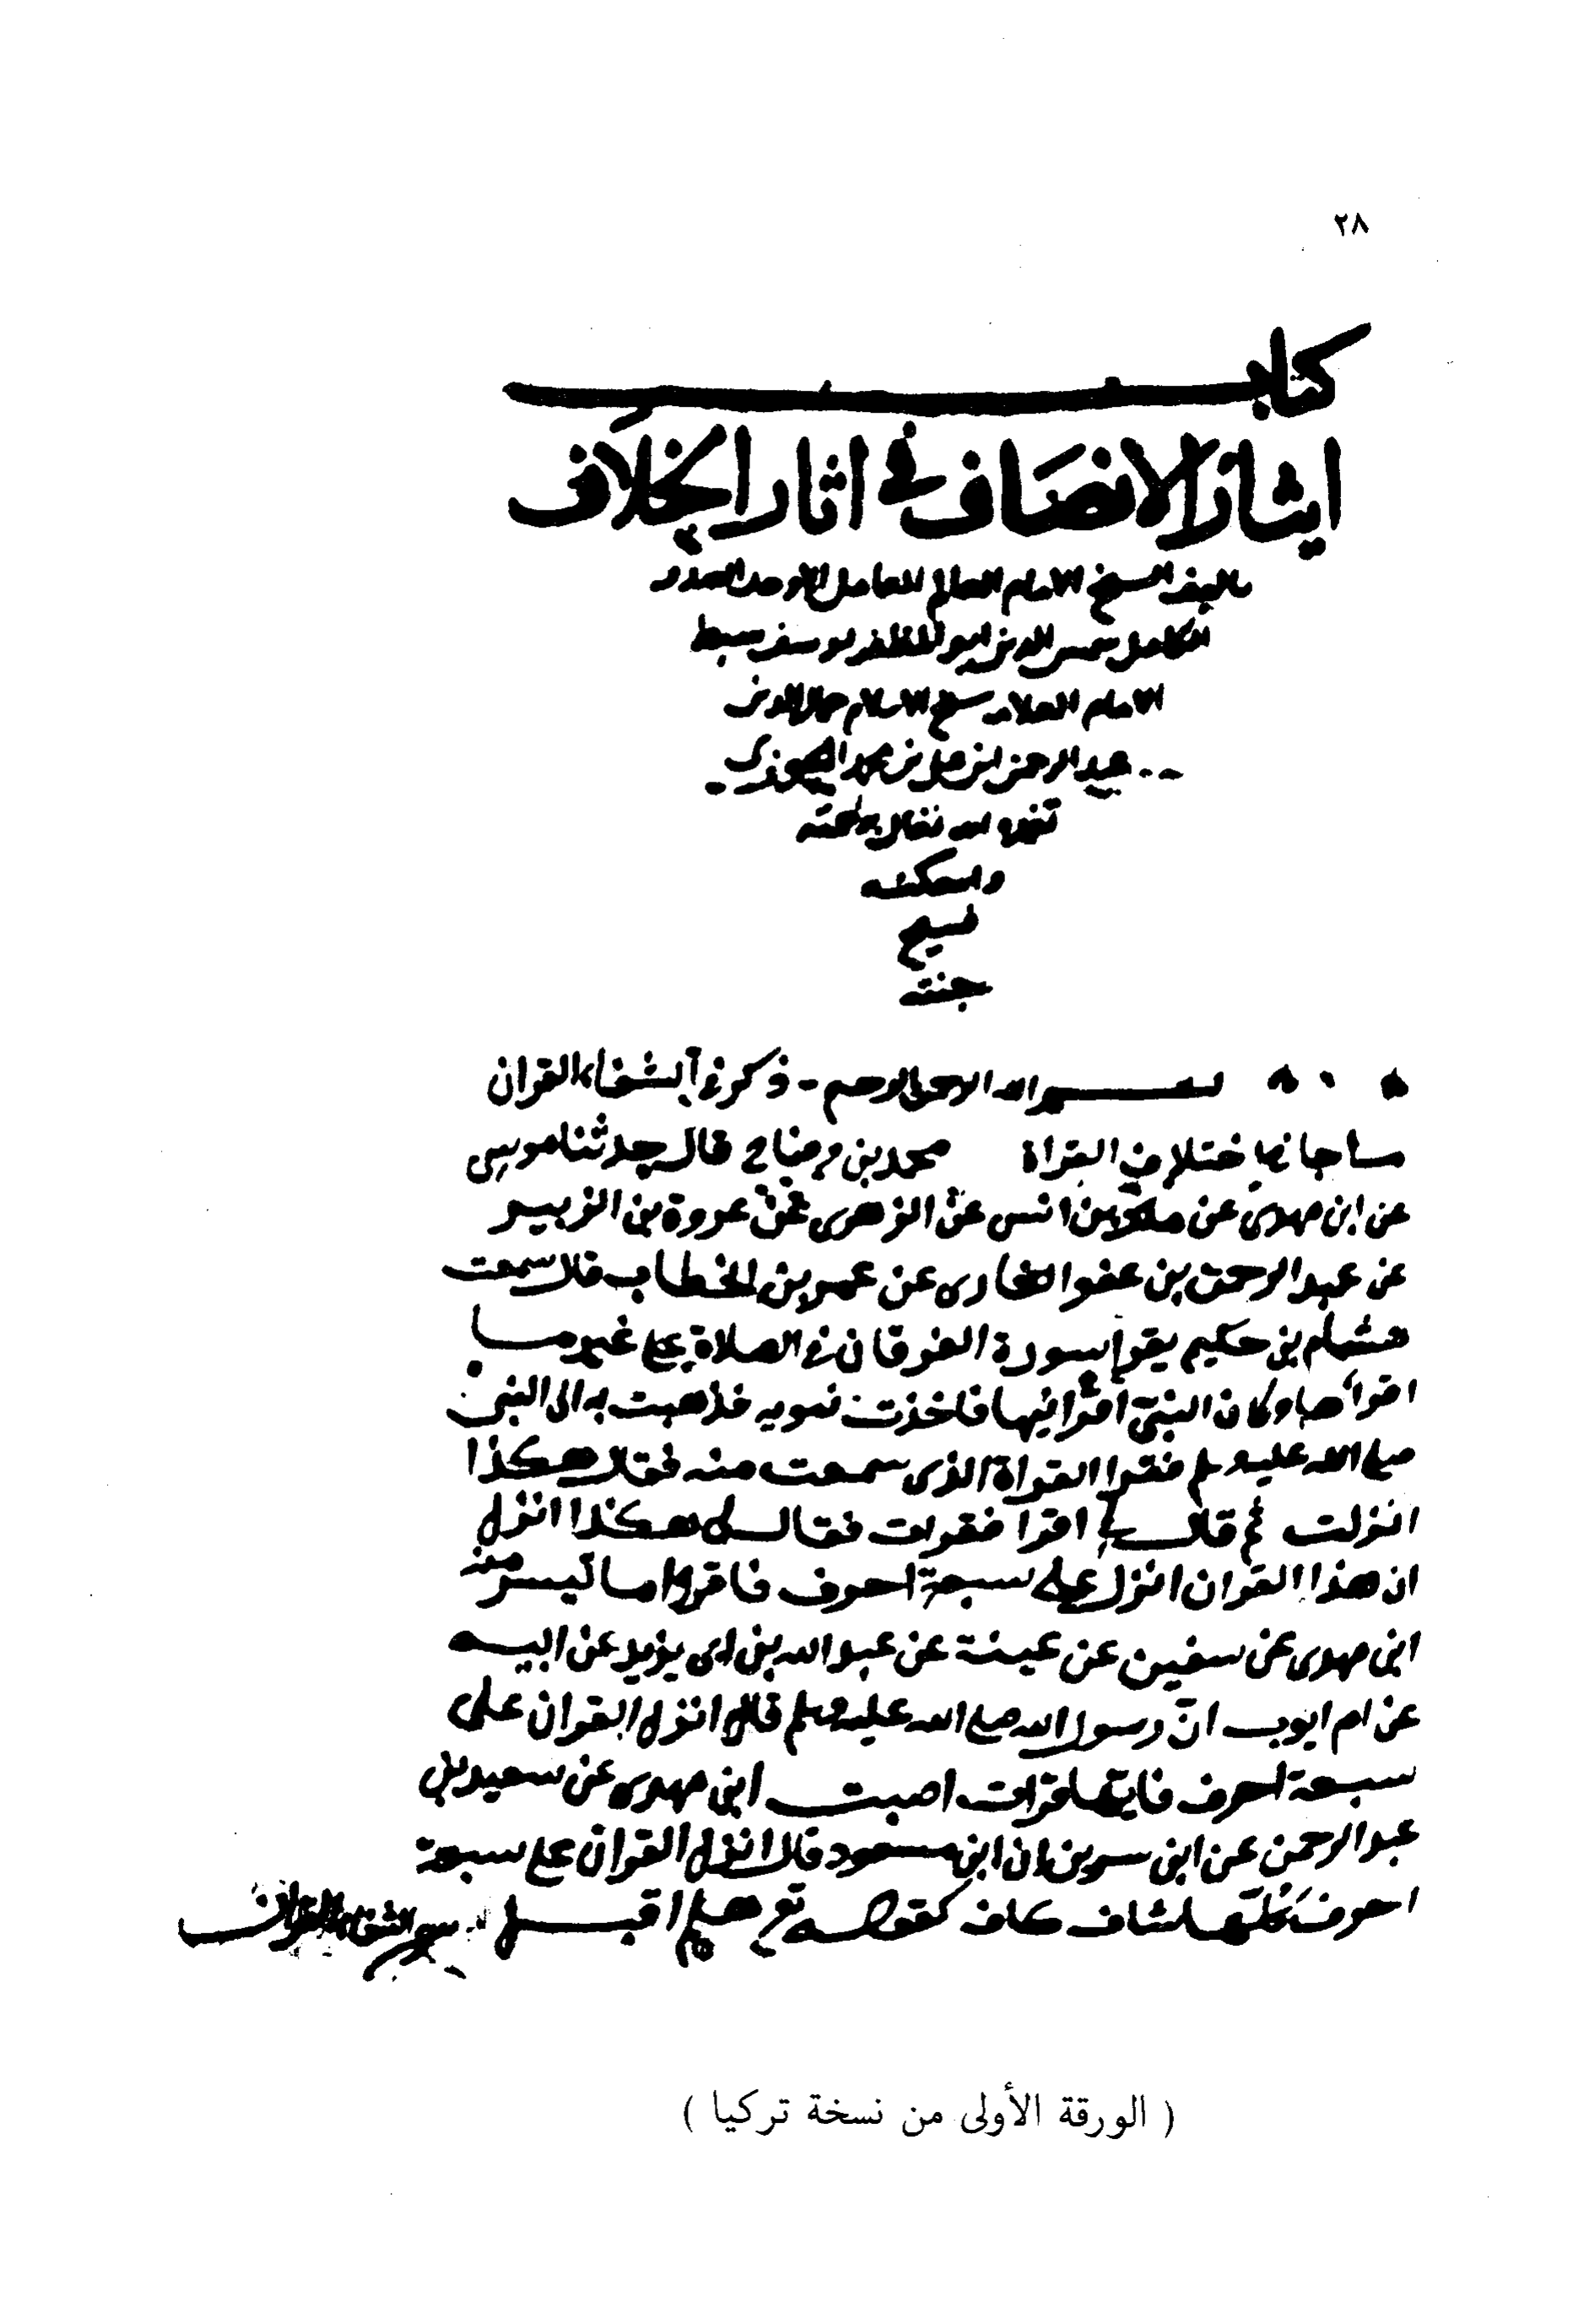 ٢٨
كتاب
ايثار الانصاف في اثار الخلاف
تاليف الشيخ الامام العالم العامل الاوحد الصدر
الكامل شمس الدين ابو المظفر يوسف سبط
الامام العلامه شيخ الاسلام جمال الدين
عبد الرحمن بن علي بن محمد الجوزي
تغمده الله تعالى برحمته
واسكنه
فسيح
جنته
بسم الله الرحمن الرحيم - ذكر في الشفا القران
ما جا في اختلاف القراة محمد بن وضاح قال حدثنا موسى
عن ابن مهدى عن ملك بن انس عن الزهرى عن عروة بن الزبير
عن عبد الرحمن بن عبد القارى عن عمر بن الخطاب قال سمعت
هشام بن حكيم يقرا سورة الفرقان فى الصلاة على غير ما
اقراها وكان النبى اقرانيها فاخذت ثوبه فذهبت به الى النبى
صلى الله عليه وسلم فقرا القراة الذى سمعت منه فقال هكذا
انزلت ثم قال لى اقرا فقرات فقال لى هكذا انزل
ان هذا القران انزل على سبعة احرف فاقروا ما تيسر منه
ابن مهدى عن سفين عن عيينة عن عبد الله بن ابى يزيد عن ابيه
عن ام ايوب ان رسول الله صلى الله عليه وسلم قال انزل القران على
سبعة احرف فايها قرات اصبت ابن مهدى عن سعيد بن
عبد الرحمن عن ابن سيرين ان ابن مسعود قال انزل القران على سبعة
احرف كلها شاف كاف كقولك تع هلم اقبل
( الورقة الأولى من نسخة تركيا )